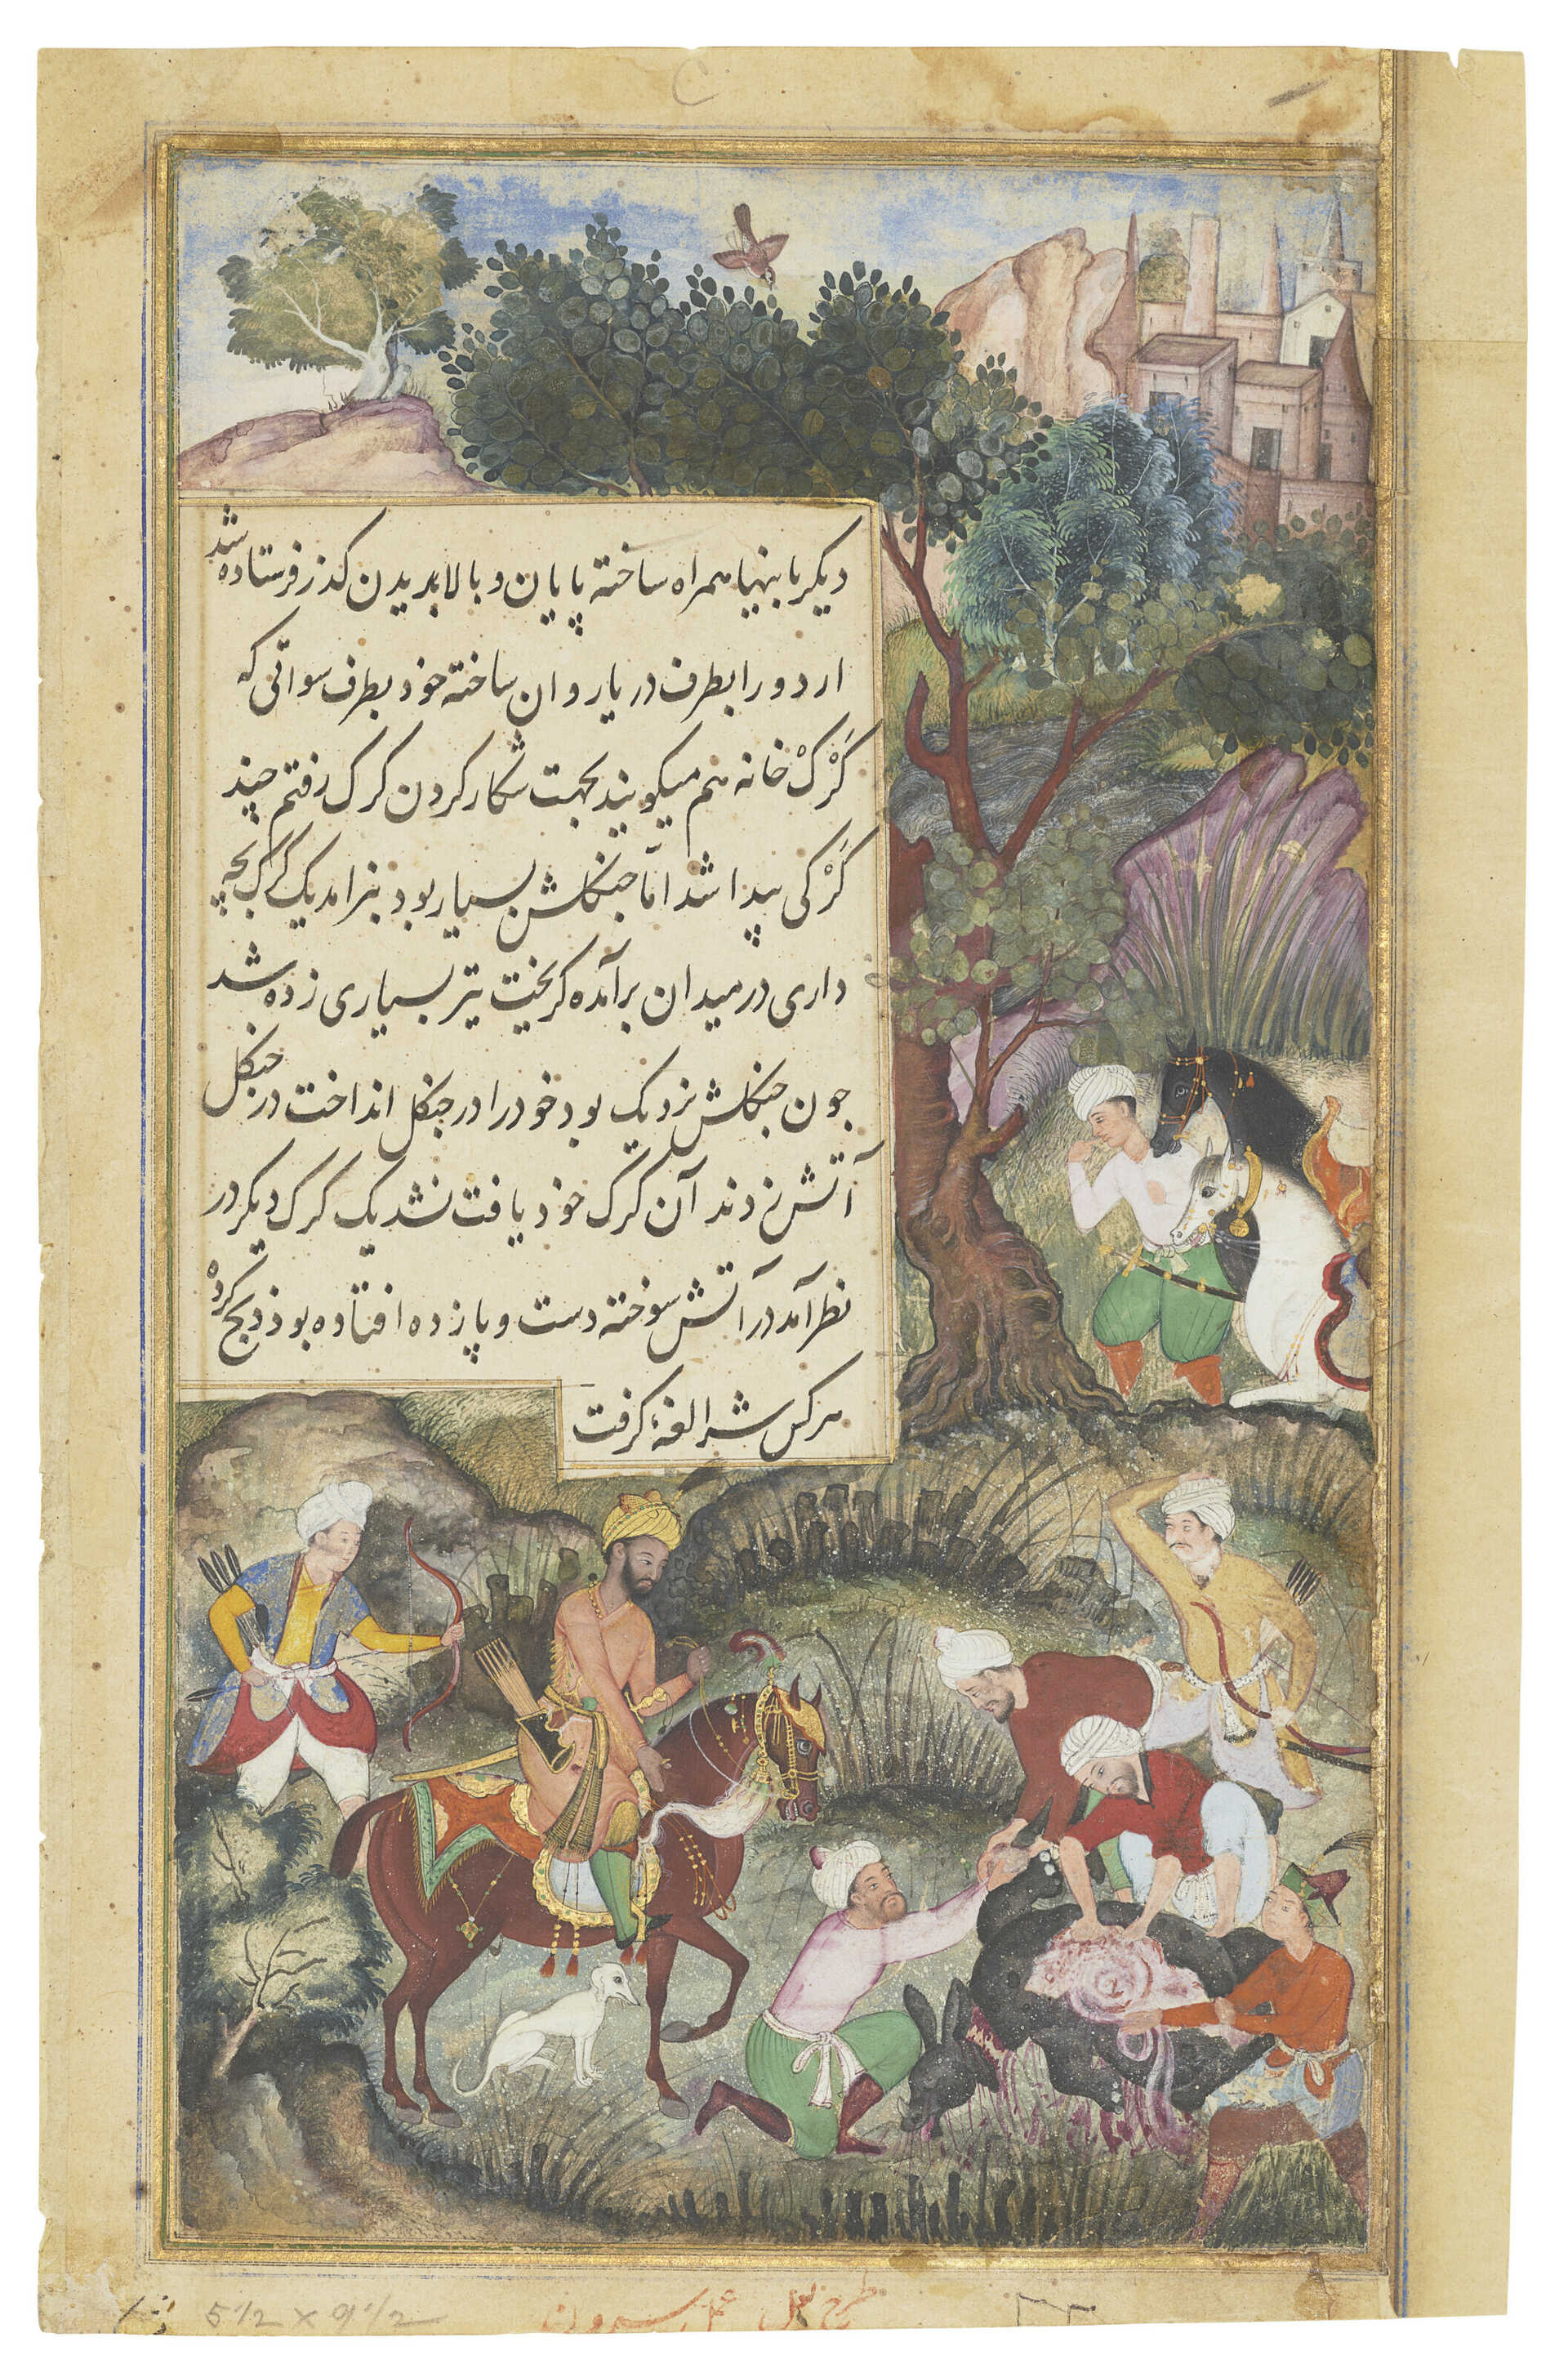 دیکر با بنهیا همراه ساخته پایان و بالا بدیدن کذر فرستاده شد
اردو را بطرف دریا روان ساخته خود بطرف سواتی که
کَرْکْ خانه هم میکویند بجهت شکار کردن کرک رفتم چند
کَرْکی پیدا شد امّا جنکلش بسیار بود بنرامد یک کرک بچه
داری در میدان برآمده کریخت تیر بسیاری زده شد
جون جنکلش نزدیک بود خود را در جنکل انداخت در جنکل
آتش زدند آن کرک خود یافت نشد یک کرک دیکر در
نظر آمد در آتش سوخته دست و پا زده افتاده بود ذبح کرده
هرکس شرالغهٔ کرفت
طرح لعل عمل
5 1/2 x 9 1/2